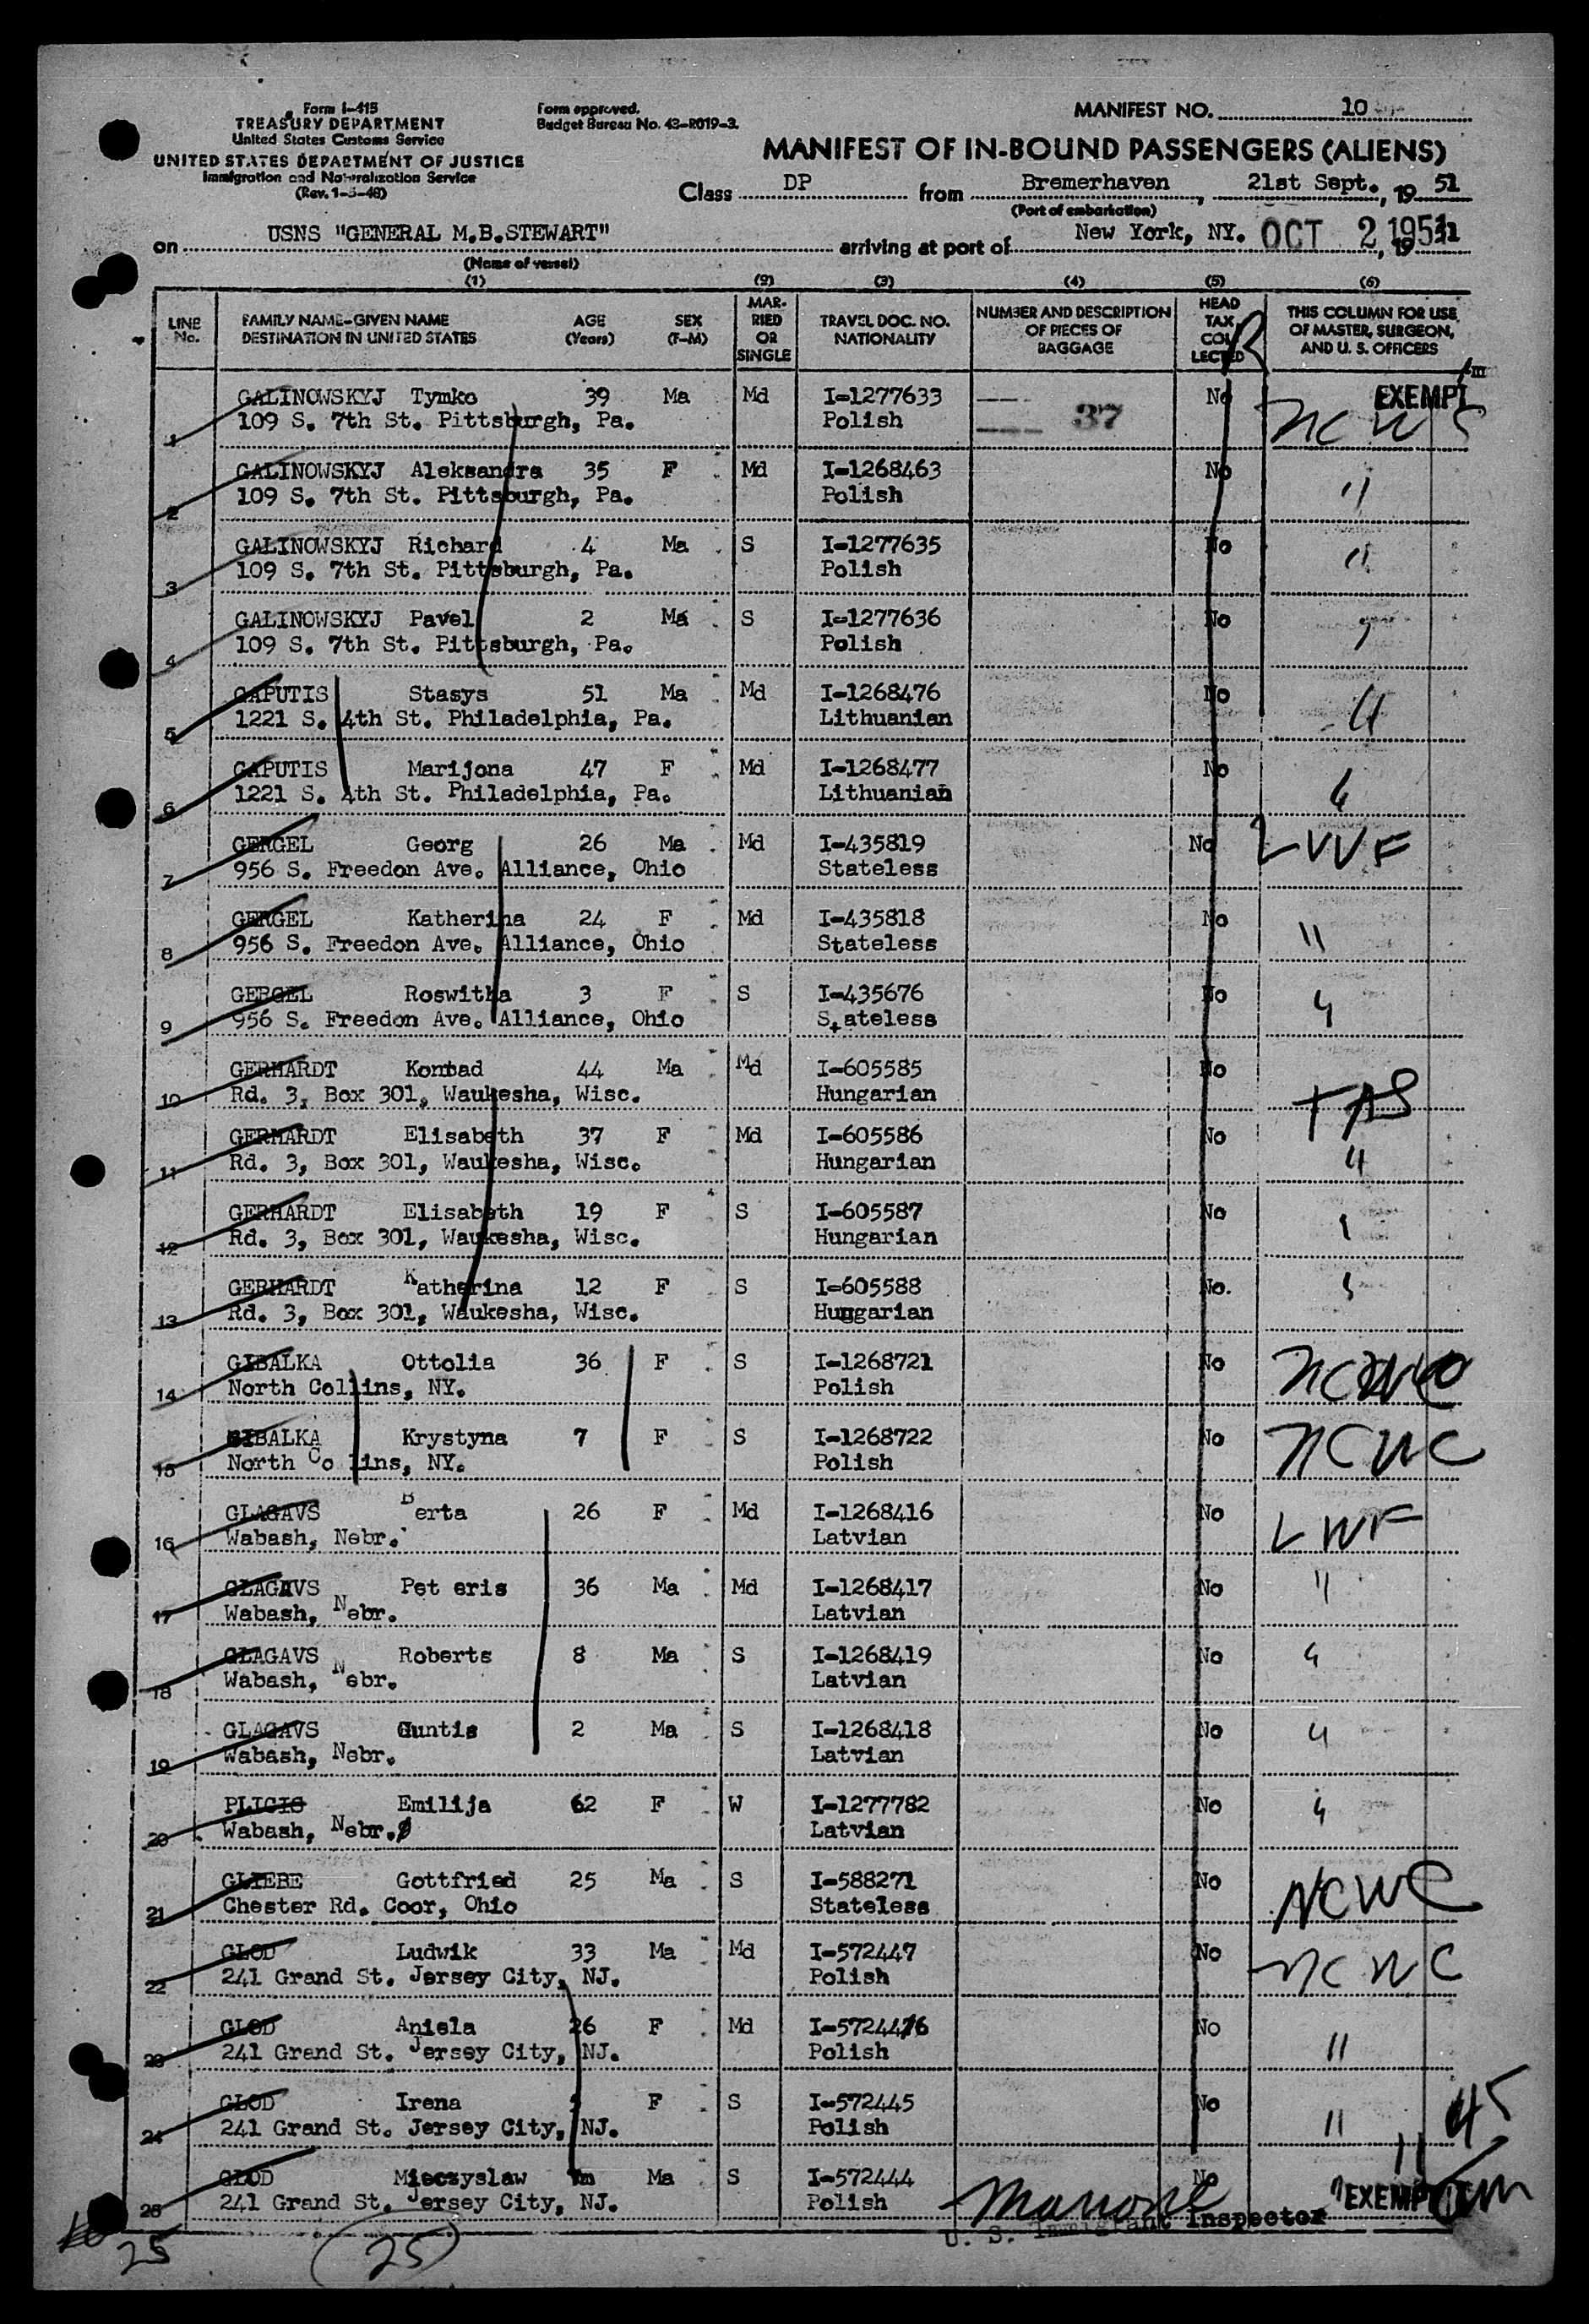 Form I-415
TREASURY DEPARTMENT
United States Customs Service
UNITED STATES DEPARTMENT OF JUSTICE
Immigration and Naturalization Service
(Rev. 1-5-48)
Form approved.
Budget Bureau No. 43-R019-3.
MANIFEST NO. 10
MANIFEST OF IN-BOUND PASSENGERS (ALIENS)
Class DP from Bremerhaven, 21st Sept., 19 51
(Port of embarkation)
on USNS "GENERAL M.B.STEWART" arriving at port of New York, NY. OCT 2 1951
(Name of vessel)
(1) (2) (3) (4) (5) (6)
LINE No.
FAMILY NAME-GIVEN NAME
DESTINATION IN UNITED STATES
AGE (Years)
SEX (F-M)
MAR-RIED OR SINGLE
TRAVEL DOC. NO. NATIONALITY
NUMBER AND DESCRIPTION OF PIECES OF BAGGAGE
HEAD TAX COL LECTED
THIS COLUMN FOR USE OF MASTER, SURGEON, AND U. S. OFFICERS
1 GALINOWSKYJ Tymko 39 Ma Md I-1277633 37 No EXEMPT
109 S. 7th St. Pittsburgh, Pa. Polish
2 GALINOWSKYJ Aleksandra 35 F Md I-1268463 No "
109 S. 7th St. Pittsburgh, Pa. Polish
3 GALINOWSKYJ Richard 4 Ma S I-1277635 No "
109 S. 7th St. Pittsburgh, Pa. Polish
4 GALINOWSKYJ Pavel 2 Ma S I-1277636 No "
109 S. 7th St. Pittsburgh, Pa. Polish
5 GAPUTIS Stasys 51 Ma Md I-1268476 No "
1221 S. 4th St. Philadelphia, Pa. Lithuanian
6 GAPUTIS Marijona 47 F Md I-1268477 No "
1221 S. 4th St. Philadelphia, Pa. Lithuanian
7 GERGEL Georg 26 Ma Md I-435819 No LWF
956 S. Freedon Ave. Alliance, Ohio Stateless
8 GERGEL Katherina 24 F Md I-435818 No "
956 S. Freedon Ave. Alliance, Ohio Stateless
9 GERGEL Roswitha 3 F S I-435676 No "
956 S. Freedon Ave. Alliance, Ohio Stateless
10 GERHARDT 44 Ma Md I-605585 No
Rd. 3, Box 301, Waukesha, Wisc. Hungarian
11 GERHARDT Elisabeth 37 F Md I-605586 No "
Rd. 3, Box 301, Waukesha, Wisc. Hungarian
12 GERHARDT Elisabeth 19 F S I-605587 No "
Rd. 3, Box 301, Waukesha, Wisc. Hungarian
13 GERHARDT Katherina 12 F S I-605588 No. "
Rd. 3, Box 301, Waukesha, Wisc. Hungarian
14 GIBALKA Ottolia 36 F S I-1268721 No
North Collins, NY. Polish
15 GIBALKA Krystyna 7 F S I-1268722 No NCWC
North Co lins, NY. Polish
16 GLAGAVS Berta 26 F Md I-1268416 No LWF
Wabash, Nebr. Latvian
17 GLAGAVS Pet eris 36 Ma Md I-1268417 No "
Wabash, Nebr. Latvian
18 GLAGAVS Roberts 8 Ma S I-1268419 No "
Wabash, Nebr. Latvian
19 GLAGAVS Guntis 2 Ma S I-1268418 No "
Wabash, Nebr. Latvian
20 PLICIS Emilija 62 F W I-1277782 No "
Wabash, Nebr. Latvian
21 GLIEBE Gottfried 25 Ma S I-588271 No NCWC
Chester Rd. Coor, Ohio Stateless
22 GLOD Ludwik 33 Ma Md I-572447 No NCWC
241 Grand St. Jersey City, NJ. Polish
23 GLOD Aniela 26 F Md I-572446 No "
241 Grand St. Jersey City, NJ. Polish
24 GLOD Irena F S I-572445 No "
241 Grand St. Jersey City, NJ. Polish
25 GLOD Mieczyslaw Ma S I-572444 No "
241 Grand St. Jersey City, NJ. Polish EXEMPT
45
U. S. Immigrant Inspector
25
(25)